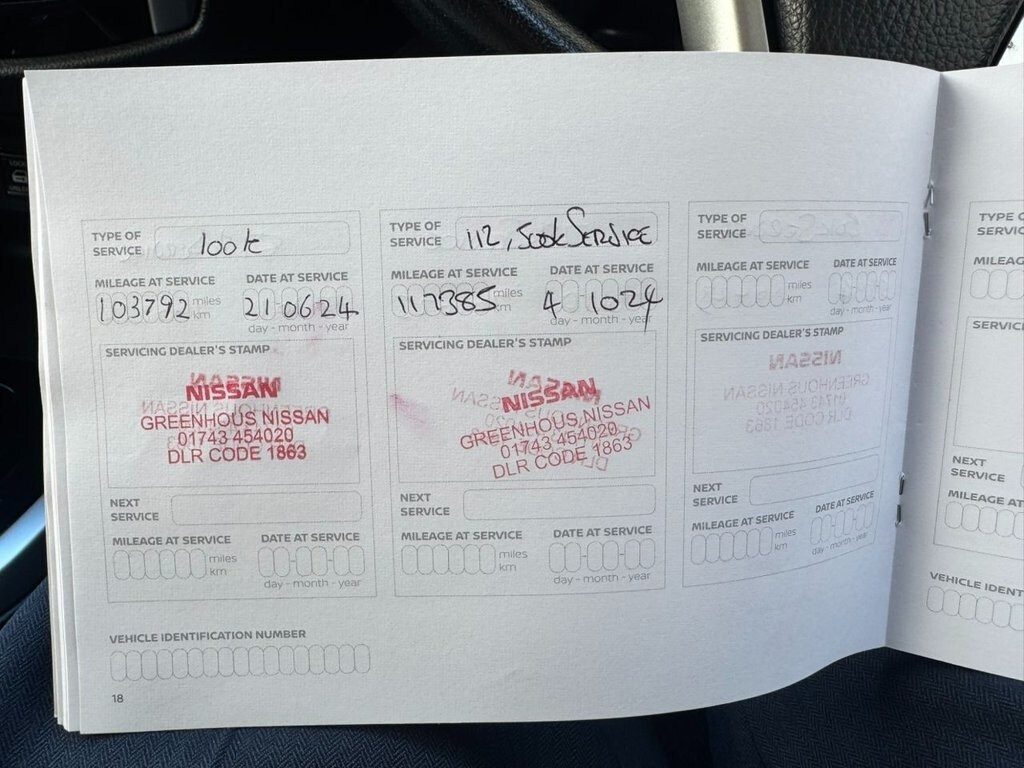 TYPE OF SERVICE 100k
MILEAGE AT SERVICE DATE AT SERVICE
103792 miles km 21 06 24
day - month - year
SERVICING DEALER'S STAMP
NISSAN
GREENHOUS NISSAN
01743 454020
DLR CODE 1863
NEXT SERVICE
MILEAGE AT SERVICE DATE AT SERVICE
miles km
day - month - year
TYPE OF SERVICE 112,500k SERVICE
MILEAGE AT SERVICE DATE AT SERVICE
117385 miles km 4 10 24
day - month - year
SERVICING DEALER'S STAMP
NISSAN
GREENHOUS NISSAN
01743 454020
DLR CODE 1863
NEXT SERVICE
MILEAGE AT SERVICE DATE AT SERVICE
miles km
day - month - year
TYPE OF SERVICE
MILEAGE AT SERVICE DATE AT SERVICE
miles km
day - month - year
SERVICING DEALER'S STAMP
NISSAN
GREENHOUS NISSAN
01743 454020
DLR CODE 1863
NEXT SERVICE
MILEAGE AT SERVICE DATE AT SERVICE
miles km
day - month - year
VEHICLE IDENTIFICATION NUMBER
18
TYPE O
SERVIC
MILEAGE A
SERVICI
NEXT
SERVICE
MILEAGE AT
VEHICLE IDENT